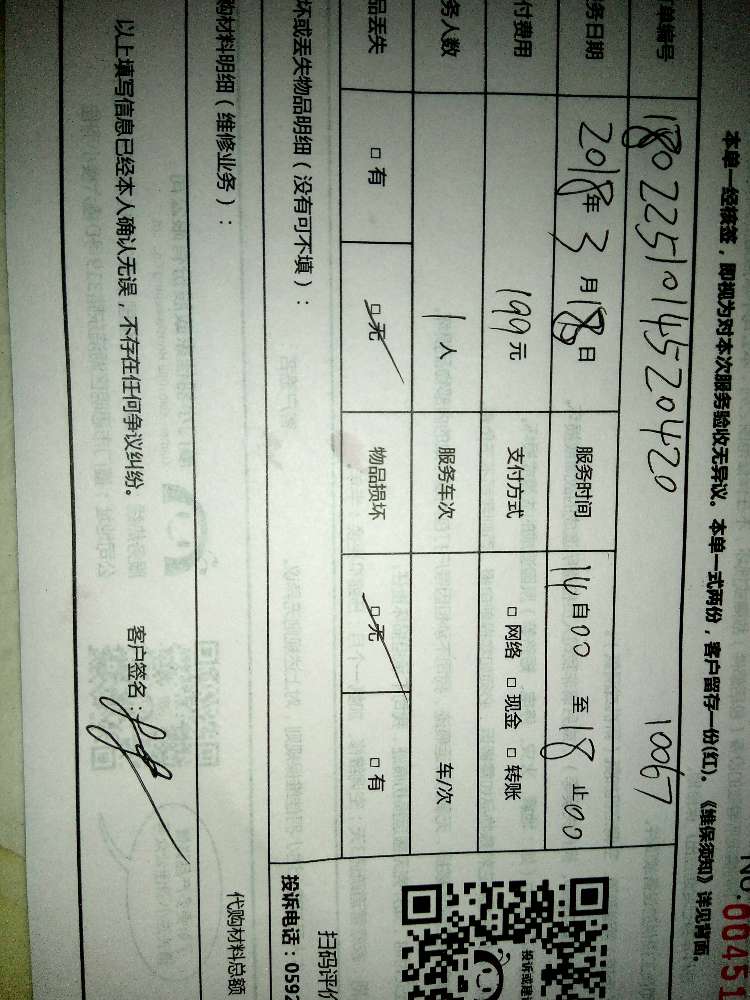 NO.00451
本单一经核签，即视为对本次服务验收无异议。本单一式两份，客户留存一份(红)。《维保须知》详见背面。
单编号 1802251014520420 10067
务日期 2018年3月18日 服务时间 14自00至18止00
付费用 199元 支付方式 □网络 □现金 □转账
务人数 1人 服务车次 车/次
品丢失 □有 □无 物品损坏 □无 □有
坏或丢失物品明细（没有可不填）：
投诉或建议
扫码评价
投诉电话：0592
购材料明细（维修业务）：
代购材料总额
以上填写信息已经本人确认无误，不存在任何争议纠纷。 客户签名：